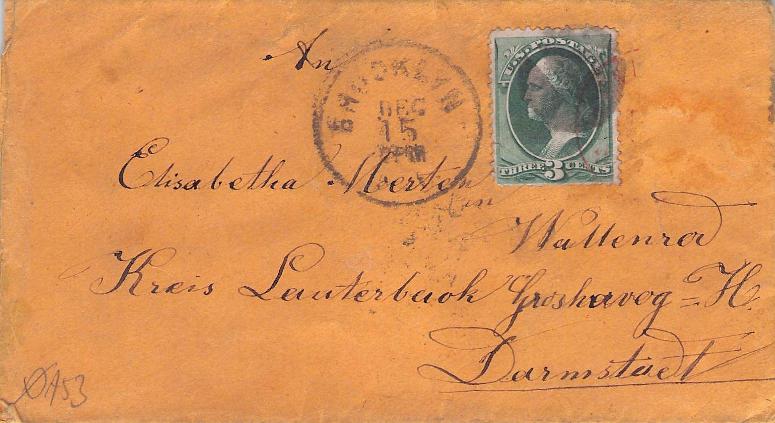 An
BROOKLYN
DEC
15
U.S. POSTAGE
THREE 3 CENTS
Elisabetha Merten
in
Wallenrod
Kreis Lauterbach Grosherzog=H.
Darmstadt